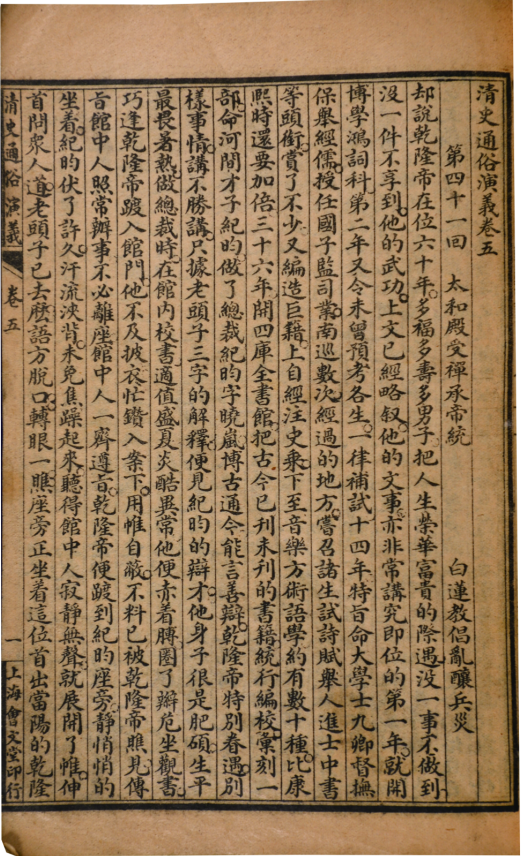 清史通俗演義卷五
第四十一回　太和殿受禪承帝統　白蓮教倡亂釀兵災
却說乾隆帝在位六十年。多福多壽多男子。把人生榮華富貴的際遇。沒一事不做到
沒一件不享到。他的武功。上文已經略叙。他的文事。亦非常講究。即位的第一年。就開
博學鴻詞科。第二年又令未曾預考各生。一律補試。十四年。特旨命大學士九卿督撫
保舉經儒。授任國子監司業。南巡數次。經過的地方。嘗召諸生試詩賦。舉人進士中書
等頭銜。賞了不少。又編造巨籍。上自經注史乘。下至音樂方術語學。約有數十種。比康
熙時還要加倍。三十六年。開四庫全書館。把古今已刊未刊的書籍。統行編校。彙刻一
部。命河間才子紀昀做了總裁。紀昀字曉嵐。博古通今。能言善辯。乾隆帝特別眷遇。別
樣事情。講不勝講。只據老頭子三字的解釋。便見紀昀的辯才。他身子很是肥碩。生平
最畏暑熱。做總裁時。在館內校書。適值盛夏。炎酷異常。他便赤着膊。圈了辮。危坐觀書
巧逢乾隆帝踱入館門。他不及披衣。忙鑽入案下。用帷自蔽。不料已被乾隆帝瞧見。傳
旨館中人照常辦事。不必離座。館中人一齊遵旨。乾隆帝便踱到紀昀座旁。靜悄悄的
坐着。紀昀伏了許久。汗流浹背。未免焦躁起來。聽得館中人寂靜無聲。就展開了帷。伸
首問衆人道。老頭子已去麽。語方脫口。轉眼一瞧。座旁正坐着這位首出當陽的乾隆
清史通俗演義　卷五　一　上海會文堂印行